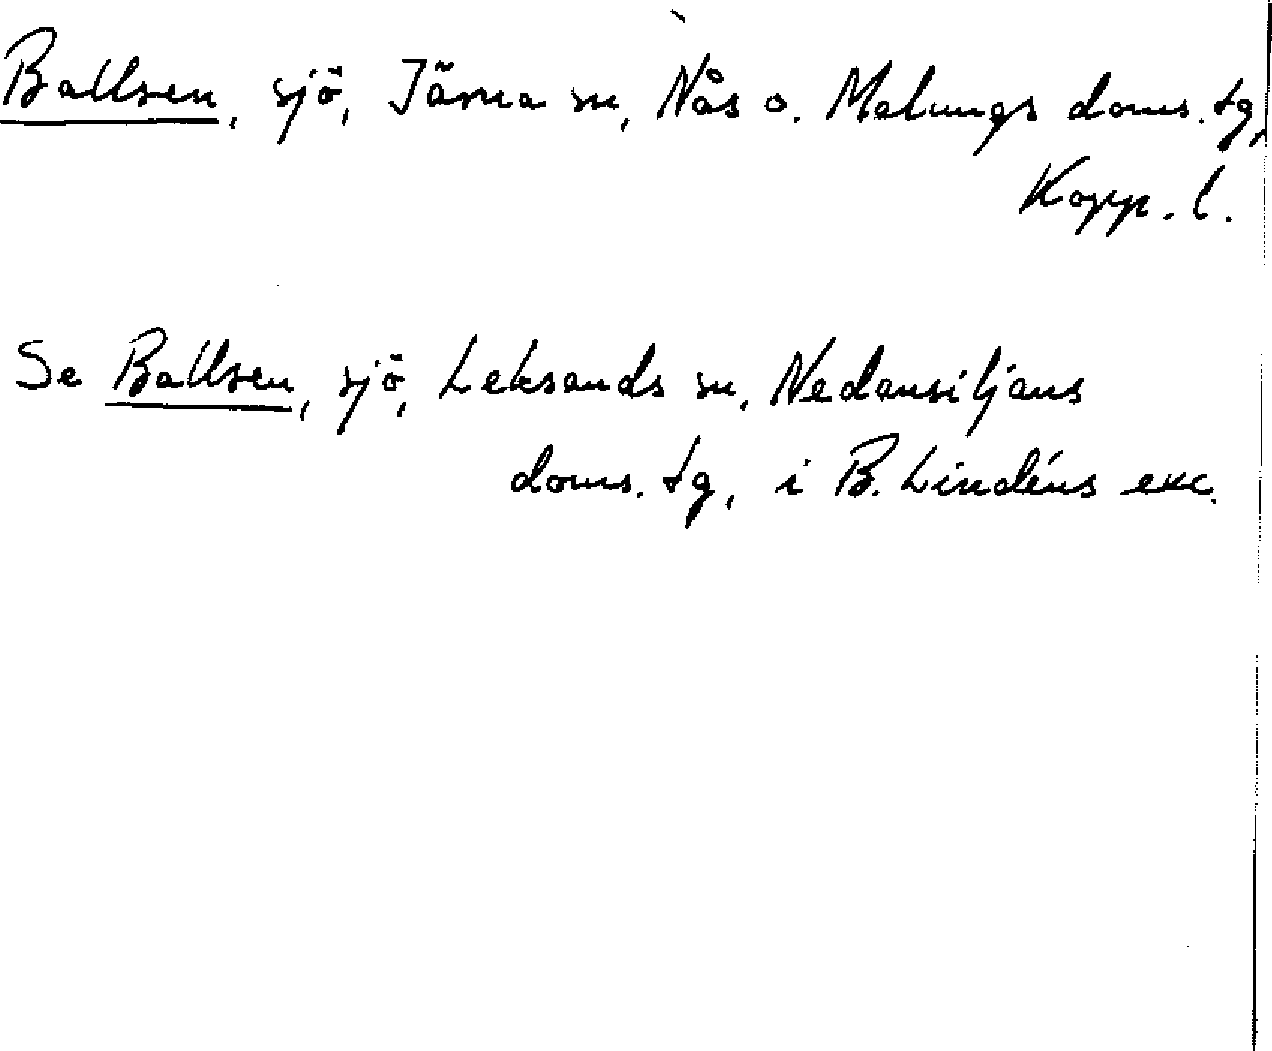 Ballsen, sjö, Järna sn, Nås o. Malungs doms. tg,
Kopp. l.
Se Ballsen, sjö, Leksands sn, Nedansiljans
doms. tg, i B. Lindéns exc.